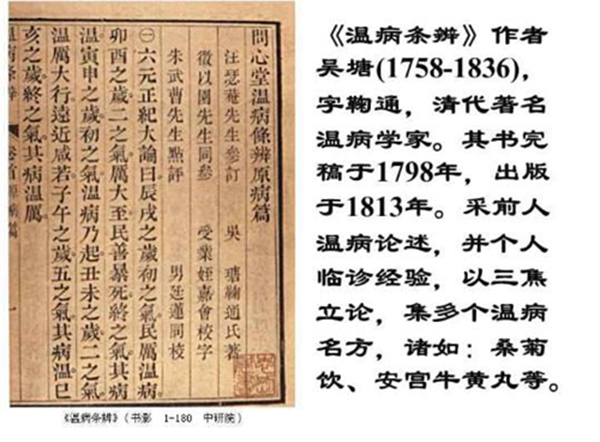 問心堂溫病條辨原病篇
汪瑟菴先生參訂 吳 瑭鞠通氏著
徵以園先生同參 受業姪嘉會校字
朱武曹先生點評 男廷蓮同校
㊀六元正紀大論曰辰戌之歲初之氣民厲溫病
卯酉之歲二之氣厲大至民善暴死終之氣其病
溫寅申之歲初之氣溫病乃起丑未之歲二之氣
溫厲大行遠近咸若子午之歲五之氣其病溫巳
亥之歲終之氣其病溫厲
溫病條辨 卷首 原病篇 一
《温病条辨》（书影 1-180 中研院）
《温病条辨》作者
吴塘(1758-1836)，
字鞠通，清代著名
温病学家。其书完
稿于1798年，出版
于1813年。采前人
温病论述，并个人
临诊经验，以三焦
立论，集多个温病
名方，诸如：桑菊
饮、安宫牛黄丸等。